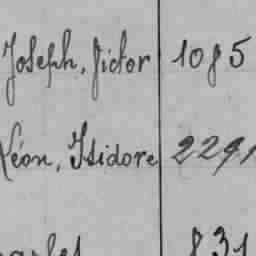 Joseph, Victor 1085
Léon, Isidore 2291
831